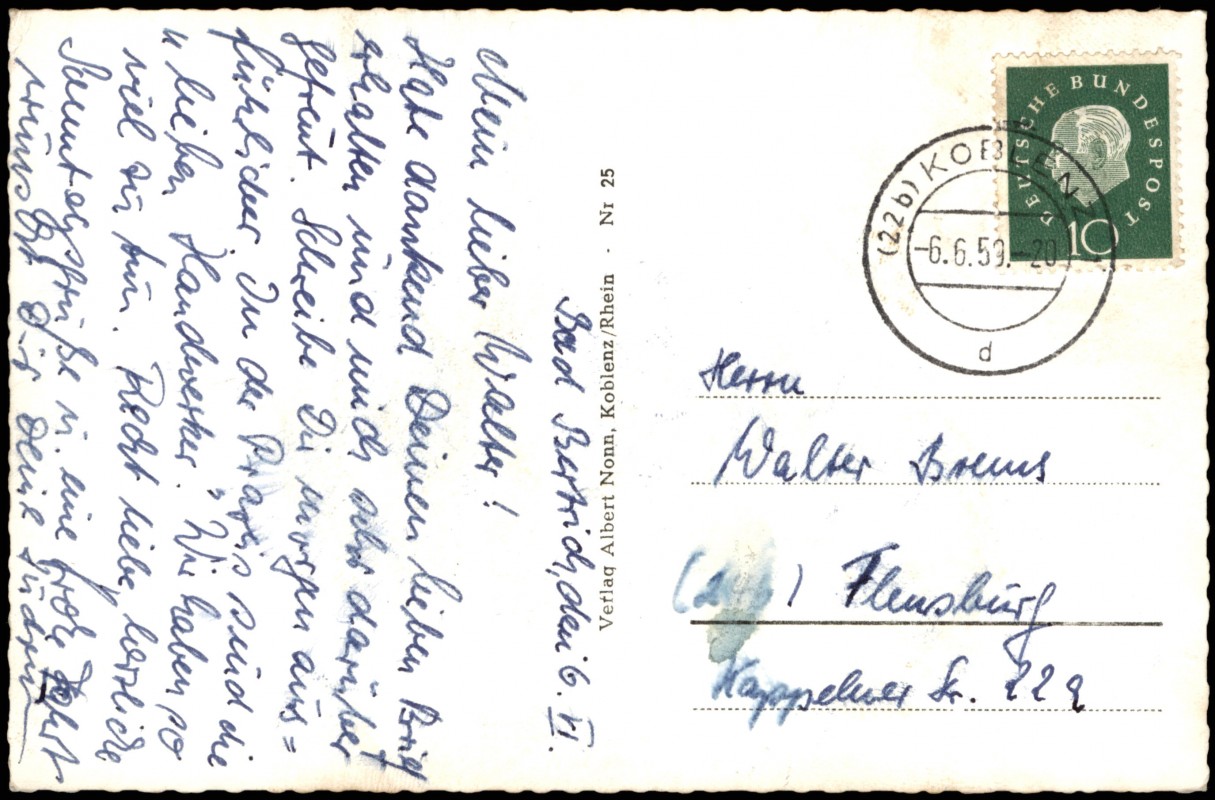 Bad Bertrich, den 6. VI.
Mein lieber Walter!
Habe dankend Deinen lieben Brief
erhalten und mich sehr darüber
gefreut. Schreibe Dir morgen aus=
führlicher. In der Praxis sind die
" lieben Handwerker." Wir haben so
viel zu tun. Recht liebe, herzliche
Sonntagsgrüße u. eine große
wünscht Dir Deine
Verlag Albert Nonn, Koblenz/Rhein · Nr 25
DEUTSCHE BUNDESPOST
10
(22b) KOBLENZ
-6.6.59.-20
d
Herrn
Walter Brems
Flensburg
Kappelner Str. 22a